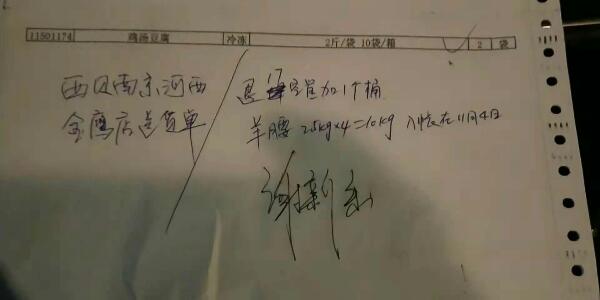 11501174 鸡汤豆腐 冷冻 2斤/袋 10袋/箱 2 袋
西贝南京河西
金鹰店送货单
加1个桶
羊腰 2.5kg×4=10kg 入帐在11月4日